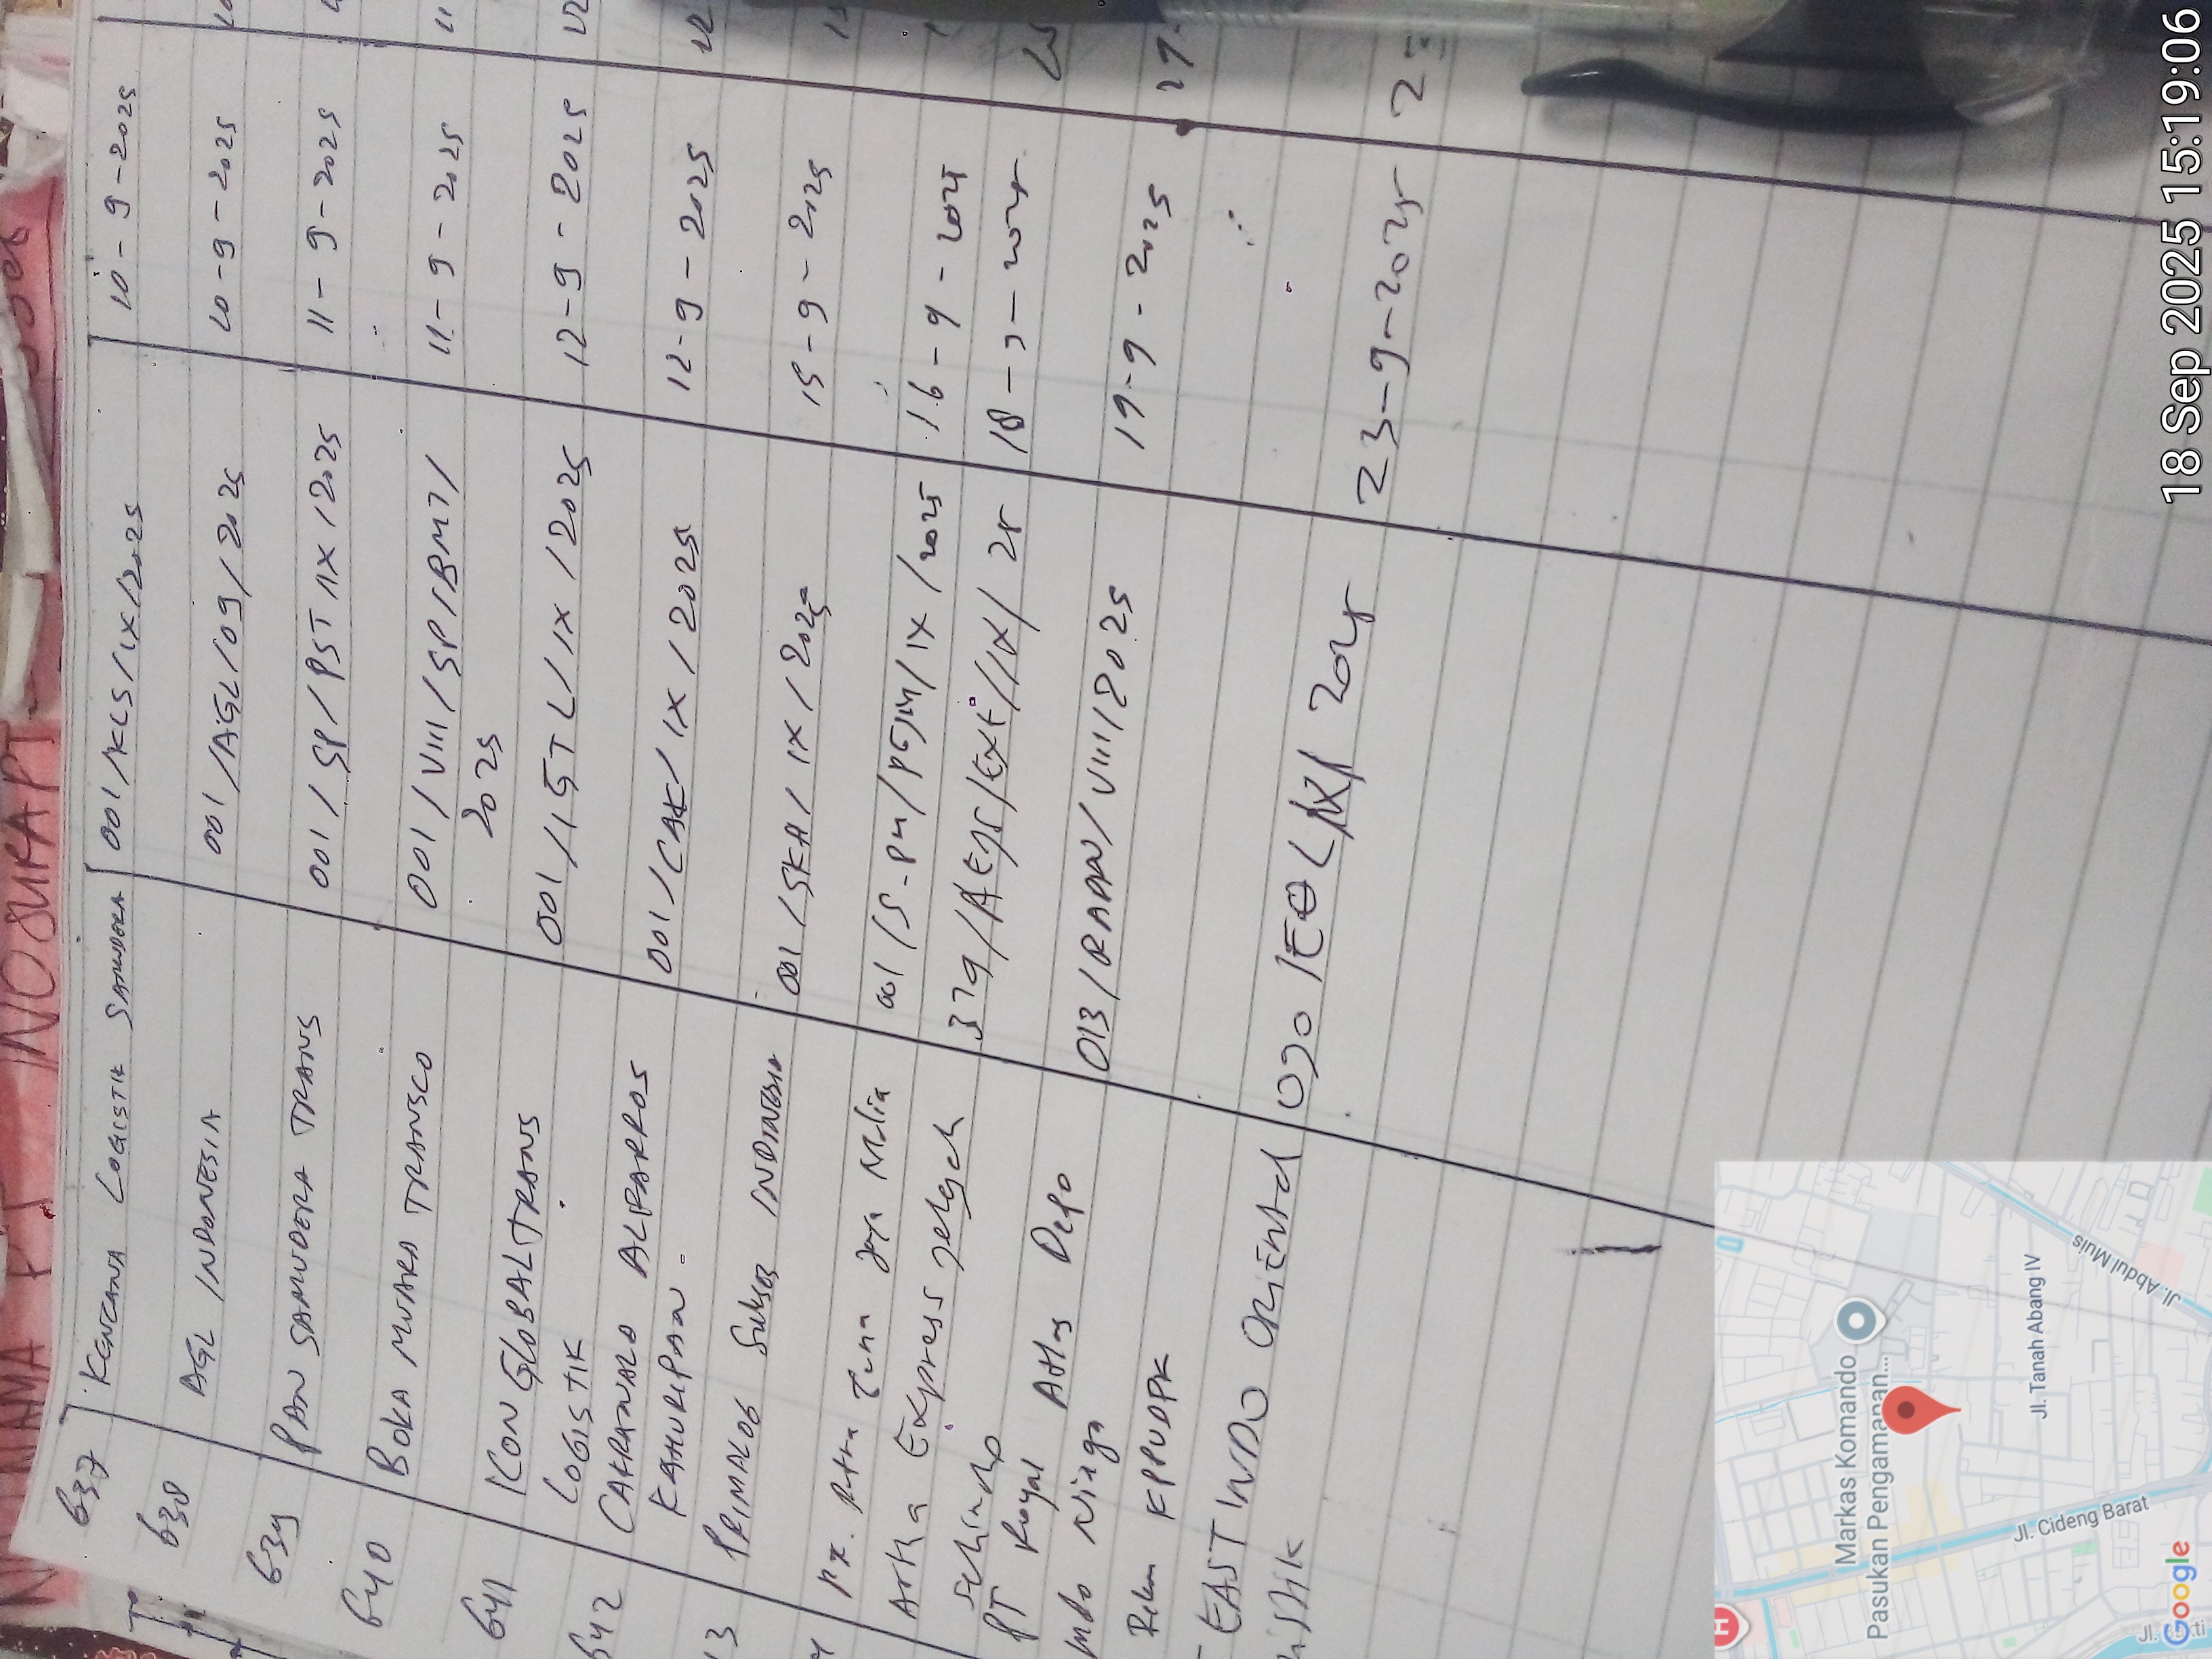 637 KENCANA LOGISTIK SAMUDERA 001/KLS/IX/2025 10-9-2025
638 AGL INDONESIA 001/AGL/09/2025 10-9-2025
639 PAN SAMUDERA TRANS 001/SP/PST/IX/2025 11-9-2025
640 BOKA MUTIARA TRANSCO 001/VIII/SP/BMT/ 11-9-2025
2025
641 ICON GLOBAL TRANS 001/IGTL/IX/2025 12-9-2025
LOGISTIK
642 CAKRANALO ALPARROS 001/CAK/IX/2025 12-9-2025
KAHURIPAN
13 PRIMALOG Sukses INDONESIA 001/SKA/IX/2025 15-9-2025
Jaya Mulia 001/S-PH/PGJM/IX/2025 16-9-2025
Artha Express 379/AEJS/Ext/IX/25 18-9-2025
PT Royal Atlas Depo 013/RADN/VIII/2025 19-9-2025
Niaga
KPPUDPK
EAST INDO Oriental 090/EOL/IX/2025 23-9-2025
18 Sep 2025 15:19:06
Markas Komando
Pasukan Pengamanan...
Jl. Tanah Abang IV
Jl. Abdul Muis
Jl. Cideng Barat
Google